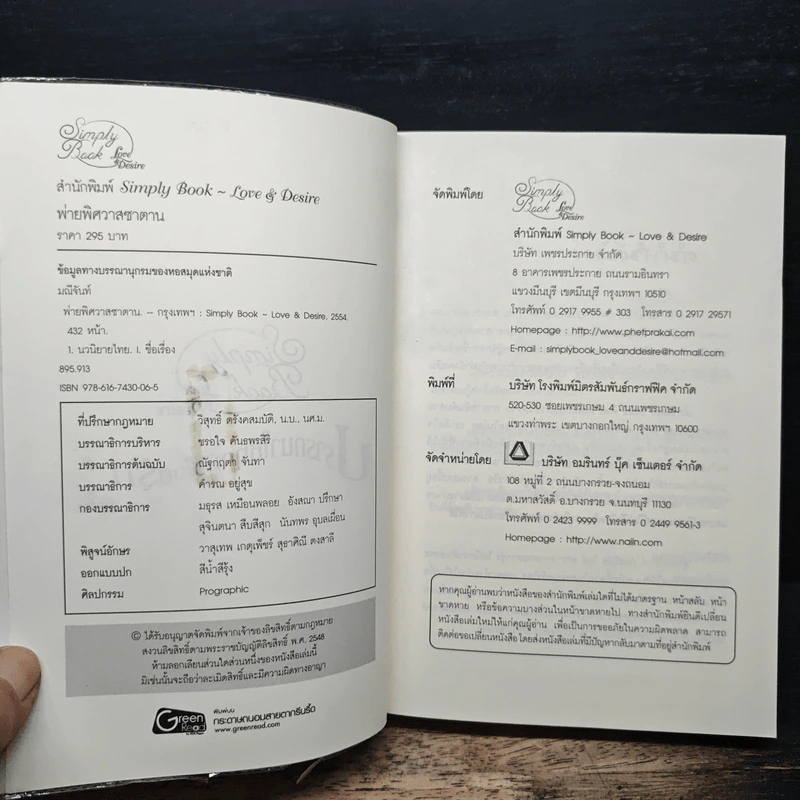 Simply
Book Love
& Desire
สำนักพิมพ์ Simply Book ~ Love & Desire
พ่ายพิศวาสซาตาน
ราคา 295 บาท
ข้อมูลทางบรรณานุกรมของหอสมุดแห่งชาติ
มณีจันท์
พ่ายพิศวาสซาตาน. -- กรุงเทพฯ : Simply Book ~ Love & Desire, 2554.
432 หน้า.
1. นวนิยายไทย. I. ชื่อเรื่อง
895.913
ISBN 978-616-7430-06-5
ที่ปรึกษากฎหมาย วิสุทธิ์ ตรังคสมบัติ, น.บ., นศ.ม.
บรรณาธิการบริหาร ขรอใจ คันธพรสิริ
บรรณาธิการต้นฉบับ ณัฐกฤตา จันทา
บรรณาธิการ คำรณ อยู่สุข
กองบรรณาธิการ มธุรส เหมือนพลอย อังสณา ปรึกษา
สุจินตนา สืบสีสุก นันทพร อุบลเผื่อน
พิสูจน์อักษร วาสุเทพ เกตุเพ็ชร์ สุธาศิณี ตงสาลี
ออกแบบปก สีน้ำสีรุ้ง
ศิลปกรรม Prographic
© ได้รับอนุญาตจัดพิมพ์จากเจ้าของลิขสิทธิ์ตามกฎหมาย
สงวนลิขสิทธิ์ตามพระราชบัญญัติลิขสิทธิ์ พ.ศ. 2548
ห้ามลอกเลียนส่วนใดส่วนหนึ่งของหนังสือเล่มนี้
มิเช่นนั้นจะถือว่าละเมิดสิทธิ์และมีความผิดทางอาญา
Green
Read
พิมพ์บน
กระดาษถนอมสายตากรีนรี้ด
www.greenread.com
จัดพิมพ์โดย
Simply
Book Love
& Desire
สำนักพิมพ์ Simply Book ~ Love & Desire
บริษัท เพชรประกาย จำกัด
8 อาคารเพชรประกาย ถนนรามอินทรา
แขวงมีนบุรี เขตมีนบุรี กรุงเทพฯ 10510
โทรศัพท์ 0 2917 9955 # 303 โทรสาร 0 2917 29571
Homepage : http://www.phetprakai.com
E-mail : simplybook_loveanddesire@hotmail.com
พิมพ์ที่ บริษัท โรงพิมพ์มิตรสัมพันธ์กราฟฟิค จำกัด
520-530 ซอยเพชรเกษม 4 ถนนเพชรเกษม
แขวงท่าพระ เขตบางกอกใหญ่ กรุงเทพฯ 10600
จัดจำหน่ายโดย บริษัท อมรินทร์ บุ๊ค เซ็นเตอร์ จำกัด
108 หมู่ที่ 2 ถนนบางกรวย-จงถนอม
ต.มหาสวัสดิ์ อ.บางกรวย จ.นนทบุรี 11130
โทรศัพท์ 0 2423 9999 โทรสาร 0 2449 9561-3
Homepage : http://www.naiin.com
หากคุณผู้อ่านพบว่าหนังสือของสำนักพิมพ์เล่มใดที่ไม่ได้มาตรฐาน หน้าสลับ หน้า
ขาดหาย หรือข้อความบางส่วนในหน้าขาดหายไป ทางสำนักพิมพ์ยินดีเปลี่ยน
หนังสือเล่มใหม่ให้แก่คุณผู้อ่าน เพื่อเป็นการขออภัยในความผิดพลาด สามารถ
ติดต่อขอเปลี่ยนหนังสือ โดยส่งหนังสือเล่มที่มีปัญหากลับมาตามที่อยู่สำนักพิมพ์